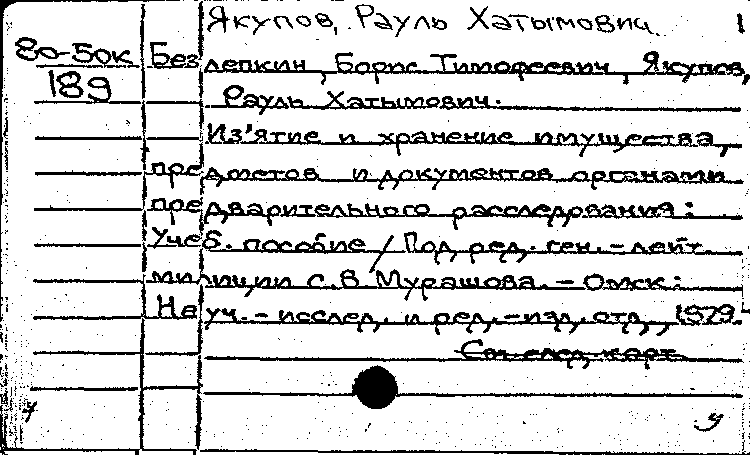 Якупов, Рауль Хатымович. 1
80-50к Безлепкин, Борис Тимофеевич, Якупов,
189 Рауль Хатымович.
Из'ятие и хранение имущества,
предметов и документов органами
предварительного расследования:
Учеб. пособие / Под ред. ген.-лейт.
милиции С.В Мурашова. - Омск:
Науч.-исслед. и ред.-изд. отд., 1979.-
См след. карт.